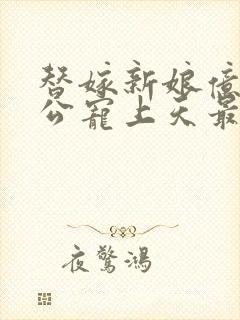 替嫁新娘億
公寵上天最
夜驚鴻